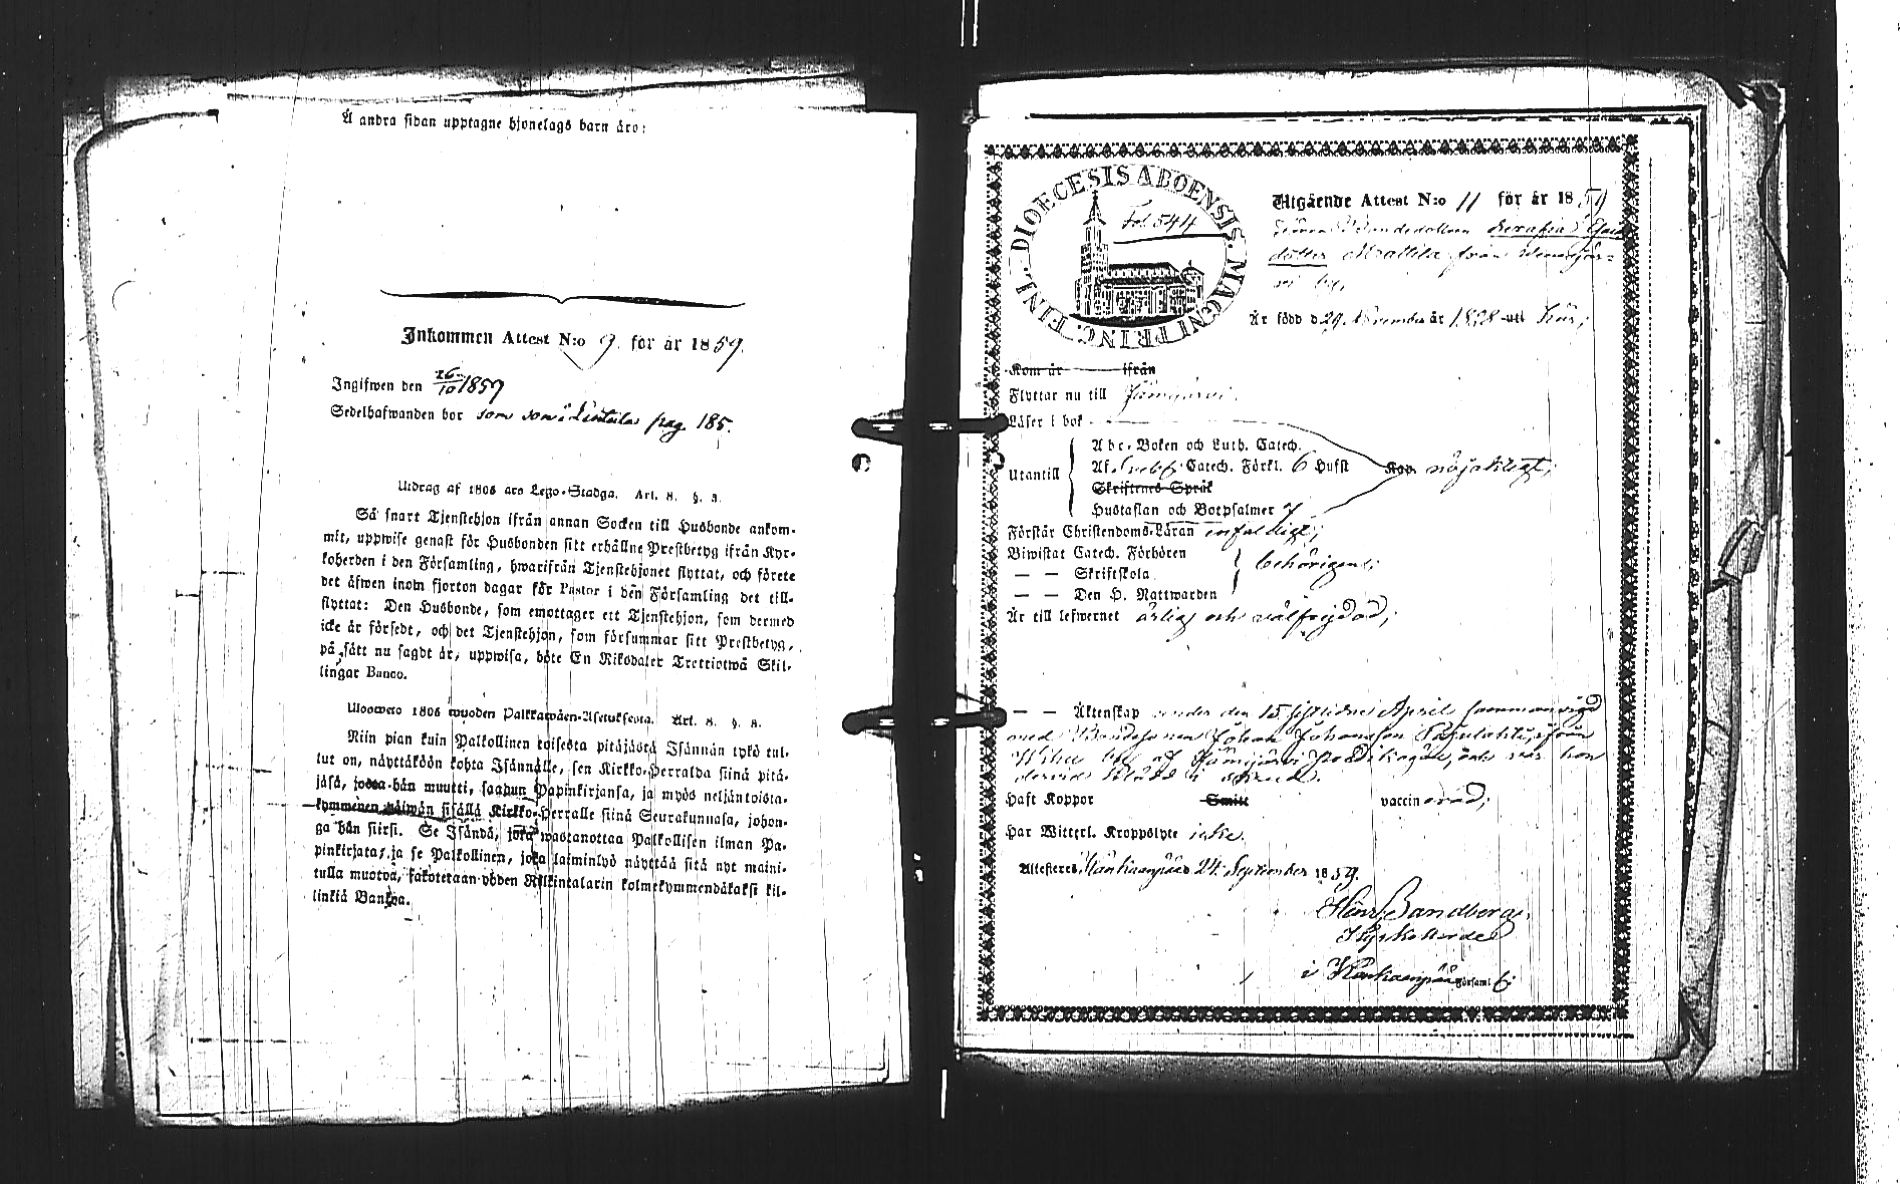 Å andra sidan upptagne hjonelags barn äro:
Inkommen Attest N:o 9. för år 1859.
Ingifwen den 26/10 1859
Sedelhafwanden bor som son i Lintula pag. 185.
Utdrag af 1805 års Lego-Stadga. Art. 8. §. 3.
Så snart Tjenstehjon ifrån annan Socken till Husbonde ankom-
mit, uppwise genast för Husbonden sitt erhållne Prestbetyg ifrån Kyr-
koherden i den Församling, hwarifrån Tjenstehjonet flyttat, och förete
det äfwen inom fjorton dagar för Pastor i den Församling det till-
flyttat: Den Husbonde, som emottager ett Tjenstehjon, som dermed
icke är försedt, och det Tjenstehjon, som försummar sitt Prestbetyg,
på sätt nu sagdt är, uppwisa, böte En Riksdaler Trettiotwå Skil-
lingar Banco.
Ulosweto 1805 wuoden Palkkawäen-Asetuksesta. Art. 8. §. 3.
Niin pian kuin Palkollinen toisesta pitäjästä Isännän tykö tul-
lut on, näyttäköön kohta Isännälle, sen Kirkko-Herralda siinä pitä-
jäsä, jossa hän muutti, saahun Papinkirjansa, ja myös neljäntoista-
kymmenen päiwän sisällä Kirkko-Herralle siinä Seurakunnasa, johon-
ga hän siirsi. Se Isändä, joka wastanottaa Palkollisen ilman Pa-
pinkirjata, ja se Palkollinen, joka laiminlyö näyttää sitä nyt maini-
tulla muotoa, sakotetaan yhden Riikintalarin kolmekymmendäkaksi kil-
linkiä Bankoa.
DIOECESIS ABOENSIS. MAGNI PRINC. FINL.
Fol. 544
Utgående Attest N:o 11 för år 1859
Bondedottern Serafia Gabr.
dotter Mattila från
by,
Är född d 29. November år 1828 här;
Kom år ifrån
Flyttar nu till Jämijärvi.
Läser i bok
Utantill
Abc-Boken och Luth. Catech.
Af Svebil. Catech. Förkl. 6 Hufst
Skriftenes Språk
Hustaflan och Botpsalmer 7
Kap. nöjaktigt;
Förstår Christendoms-Läran enfaldigt;
Biwistat Catech. Förhören
— — Skriftskola
— — Den H. Nattwarden
behörigen;
Är till lefwernet ärlig och välfrejdad;
— — Äktenskap sedan den 15 sistlidne April sammanvigd
med Bondesonen Johan Johansson från
by af Jämijärvi och var hon
Haft Koppor Smitt vaccinerad;
Har Witterl. Kroppslyte icke.
Attesteres Kankaanpää 24. September 1859.
Henr. Sandberg,
Kyrkoherde
i Kankaanpää församl.